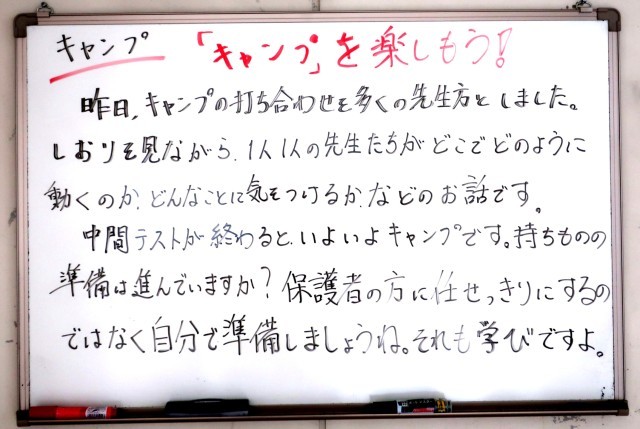 キャンプ 「キャンプ」を楽しもう!
昨日,キャンプの打ち合わせを多くの先生方としました。
しおりを見ながら,1人1人の先生たちがどこでどのように
動くのか,どんなことに気をつけるか,などのお話です。
中間テストが終わると,いよいよキャンプです。持ちものの
準備は進んでいますか?保護者の方に任せっきりにするの
ではなく自分で準備しましょうね。それも学びですよ。